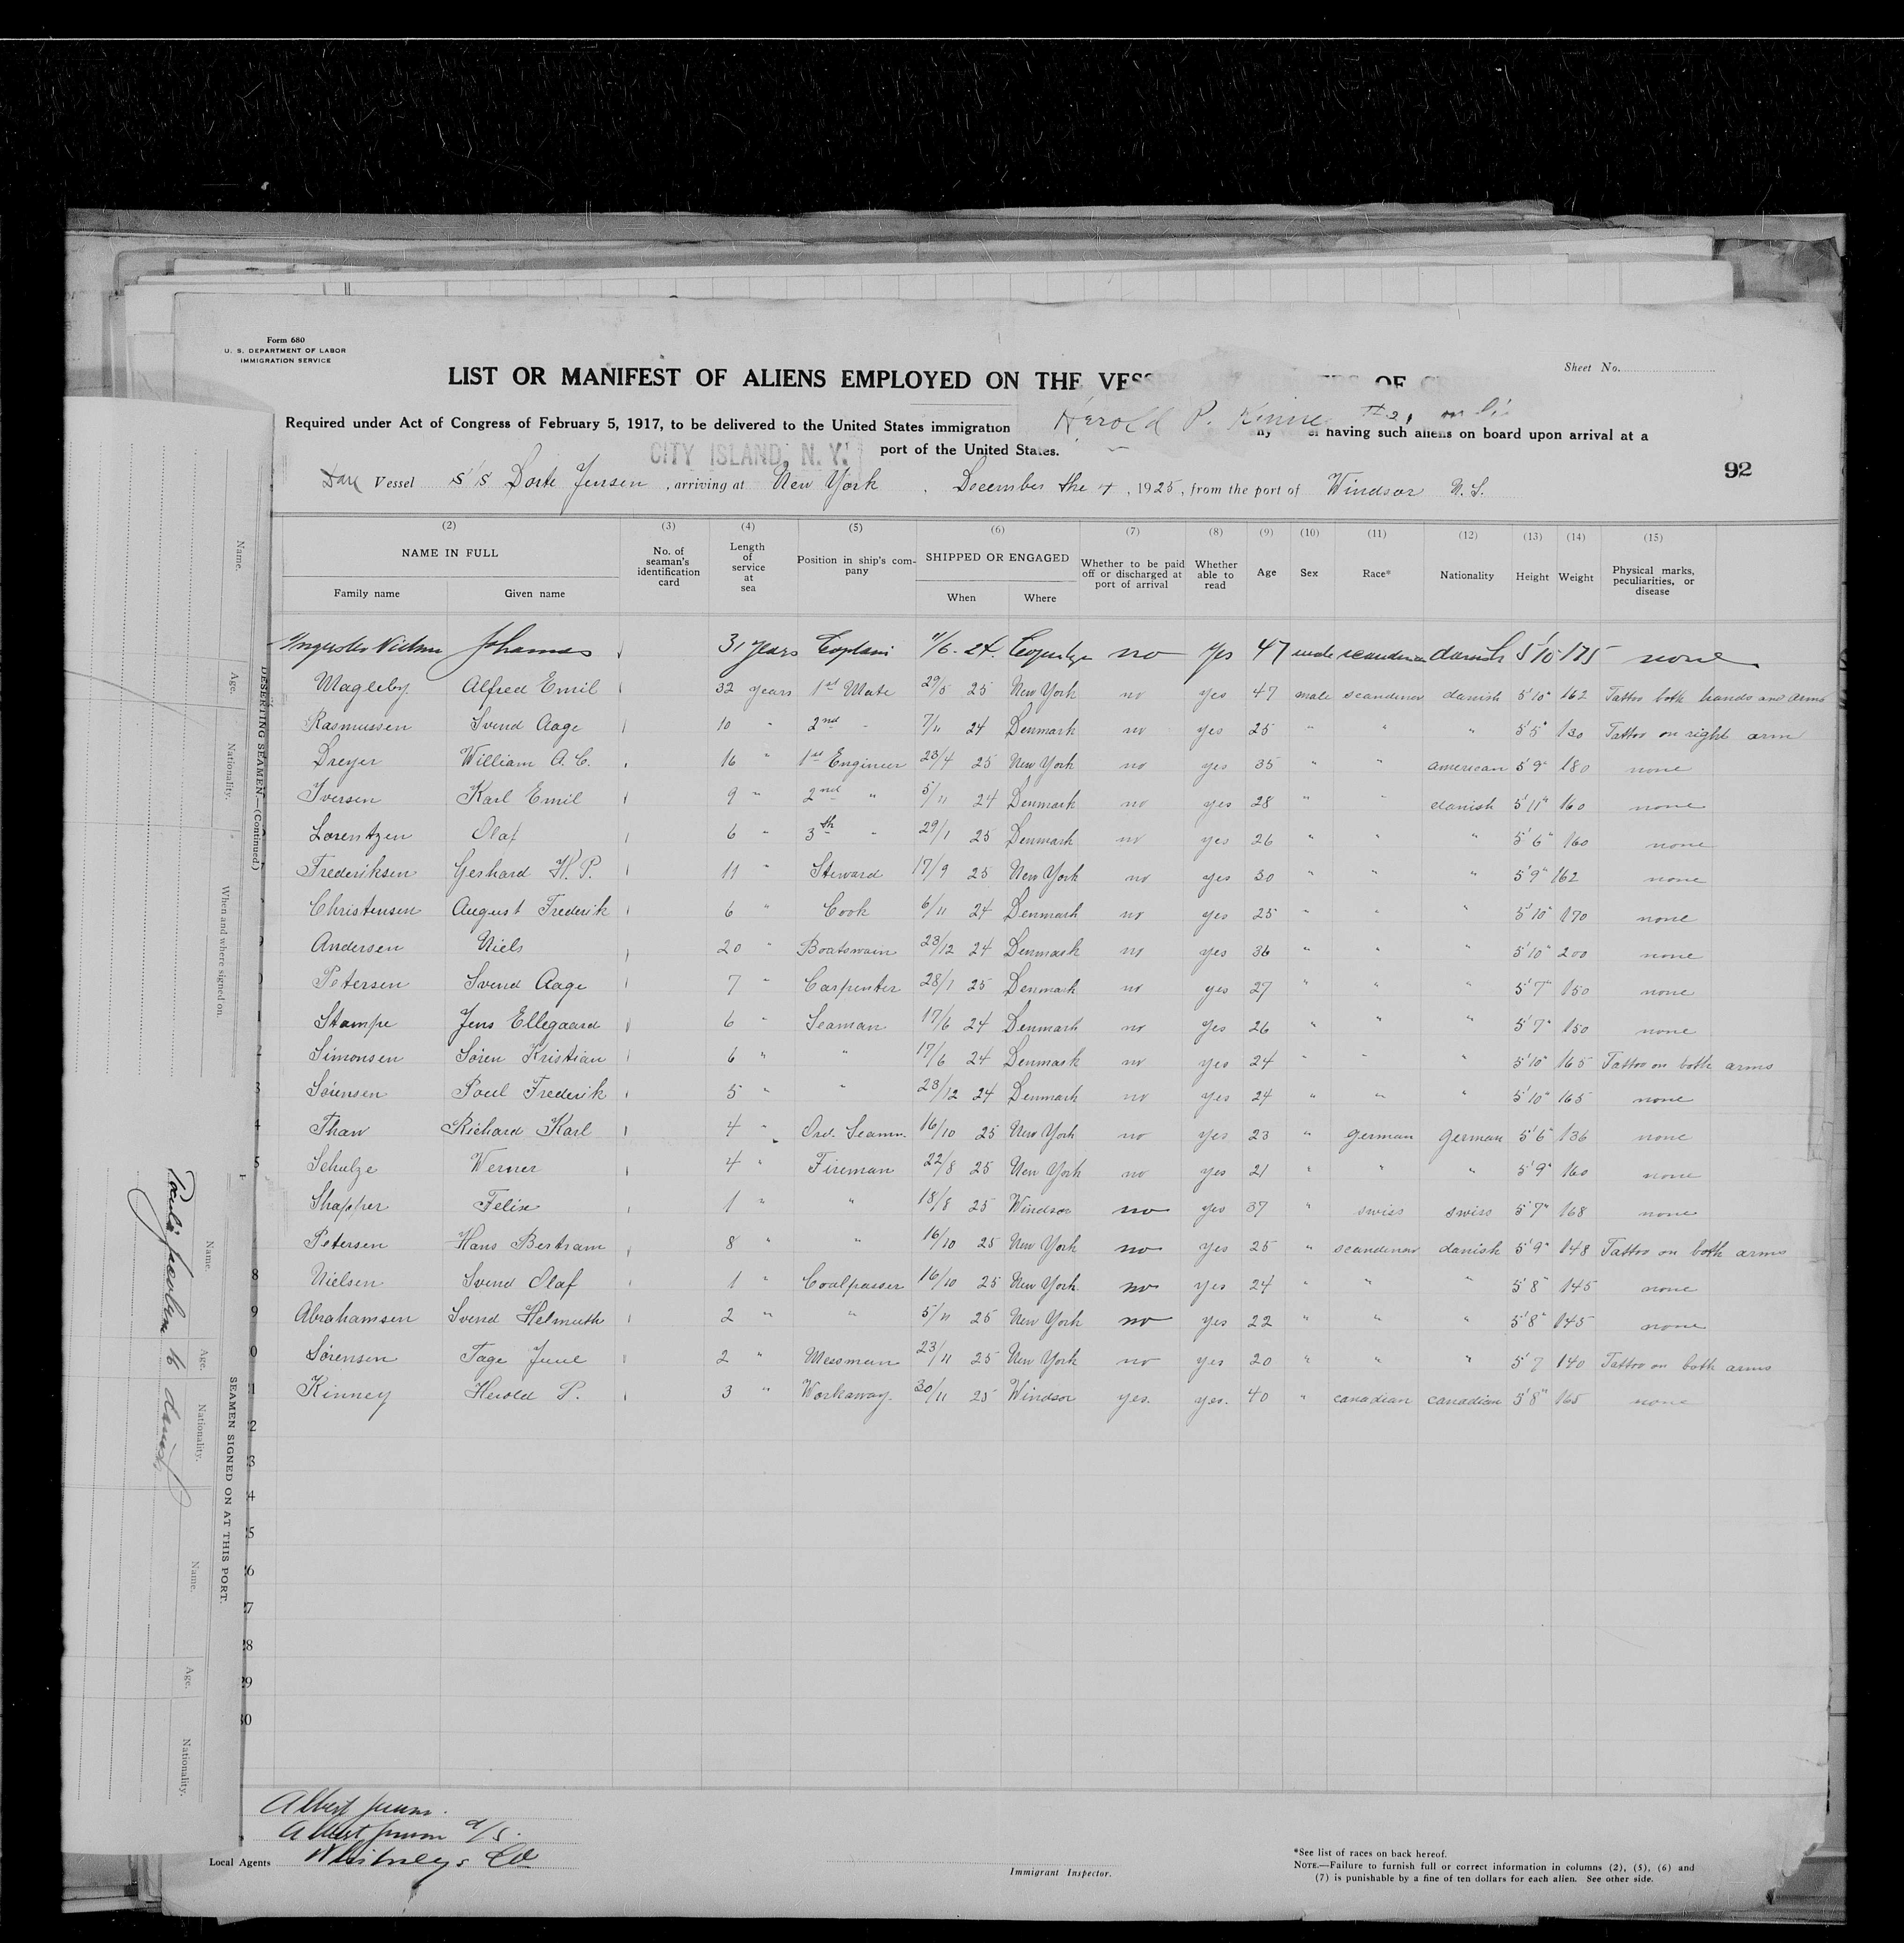 Form 680
U. S. DEPARTMENT OF LABOR
IMMIGRATION SERVICE
Sheet No.
LIST OR MANIFEST OF ALIENS EMPLOYED ON THE VESSEL OF
Required under Act of Congress of February 5, 1917, to be delivered to the United States immigration Herold P. Kinney #21 having such aliens on board upon arrival at a
CITY ISLAND, N. Y. port of the United States.
92
Dan Vessel S/S Dorte Jensen, arriving at New York, December the 4, 1925, from the port of Windsor N. S.
(2) (3) (4) (5) (6) (7) (8) (9) (10) (11) (12) (13) (14) (15)
NAME IN FULL No. of seaman's identification card Length of service at sea Position in ship's company SHIPPED OR ENGAGED Whether to be paid off or discharged at port of arrival Whether able to read Age Sex Race* Nationality Height Weight Physical marks, peculiarities, or disease
Family name Given name When Where
Johannes 31 years Captain 24 no yes 47 male danish 5'10 175 none
Magleby Alfred Emil 32 years 1st Mate 29/5 25 New York no yes 47 male scandinav danish 5'10" 162 Tattoo both hands and arms
Rasmussen Svend Aage 10 " 2nd " 7/11 24 Denmark no yes 25 " " " 5'5" 130 Tattoo on right arm
Dreyer William A. C. 16 " 1st Engineer 23/4 25 New York no yes 35 " " american 5'9" 180 none
Iversen Karl Emil 9 " 2nd " 5/11 24 Denmark no yes 28 " " danish 5'11" 160 none
Lorentzen Olaf 6 " 3th " 29/1 25 Denmark no yes 26 " " " 5'6" 160 none
Frederiksen Gerhard K. P. 11 " Steward 17/9 25 New York no yes 30 " " " 5'9" 162 none
Christensen August Frederik 6 " Cook 6/11 24 Denmark no yes 25 " " " 5'10" 170 none
Andersen Niels 20 " Boatswain 23/12 24 Denmark no yes 36 " " " 5'10" 200 none
Petersen Svend Aage 7 " Carpenter 28/1 25 Denmark no yes 27 " " " 5'7" 150 none
Stampe Jens Ellegaard 6 " Seaman 17/6 24 Denmark no yes 26 " " " 5'7" 150 none
Simonsen Sören Kristian 6 " " 17/6 24 Denmark no yes 24 " " " 5'10" 165 Tattoo on both arms
Sörensen Poul Frederik 5 " " 23/12 24 Denmark no yes 24 " " " 5'10" 165 none
Thaw Richard Karl 4 " Ord. Seamn. 16/10 25 New York no yes 23 " german german 5'6" 136 none
Schulze Werner 4 " Fireman 22/8 25 New York no yes 21 " " " 5'9" 160 none
Shapper Felix 1 " " 18/8 25 Windsor no yes 37 " swiss swiss 5'7" 168 none
Petersen Hans Bertram 8 " " 16/10 25 New York no yes 25 " scandinav danish 5'9" 148 Tattoo on both arms
Nielsen Svend Olaf 1 " Coalpasser 16/10 25 New York no yes 24 " " " 5'8" 145 none
Abrahamsen Svend Helmuth 2 " " 5/11 25 New York no yes 22 " " " 5'8" 145 none
Sörensen Tage Juul 2 " Messman 23/11 25 New York no yes 20 " " " 5'7 140 Tattoo on both arms
Kinney Herold P. 3 " Workaway. 30/11 25 Windsor yes. yes. 40 " canadian canadian 5'8" 165 none
Albert Jensen.
Albert Jensen a/s.
Local Agents Whitney & Co
Immigrant Inspector.
*See list of races on back hereof.
NOTE.—Failure to furnish full or correct information in columns (2), (5), (6) and
(7) is punishable by a fine of ten dollars for each alien. See other side.
DESERTING SEAMEN.—(Continued.)
Name. Age. Nationality. When and where signed on.
SEAMEN SIGNED ON AT THIS PORT.
Name. Age. Nationality. Name. Age. Nationality.
16 danish